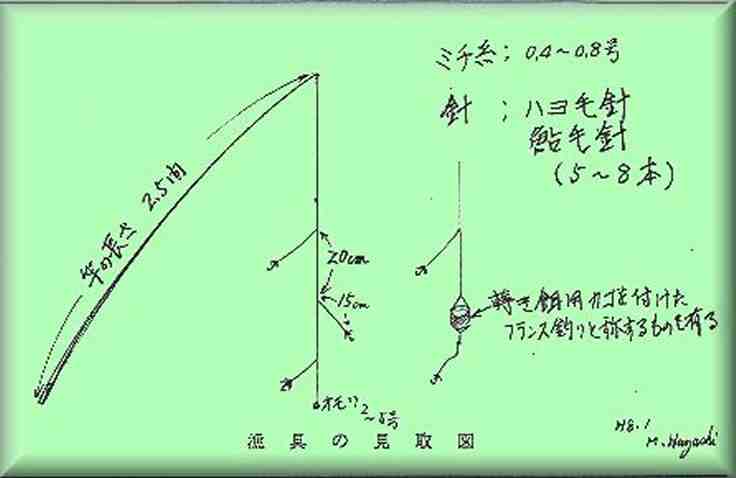 ミチ糸; 0.4～0.8号
針 ; ハヨ毛針
鮎毛針
(5～8本)
竿の長さ 2.5間
20cm
15cm
オモリ2
～5号
餌用カゴを付けた
フランス釣りと称するものも有る
漁具の見取図
H8.1
M. Hayashi